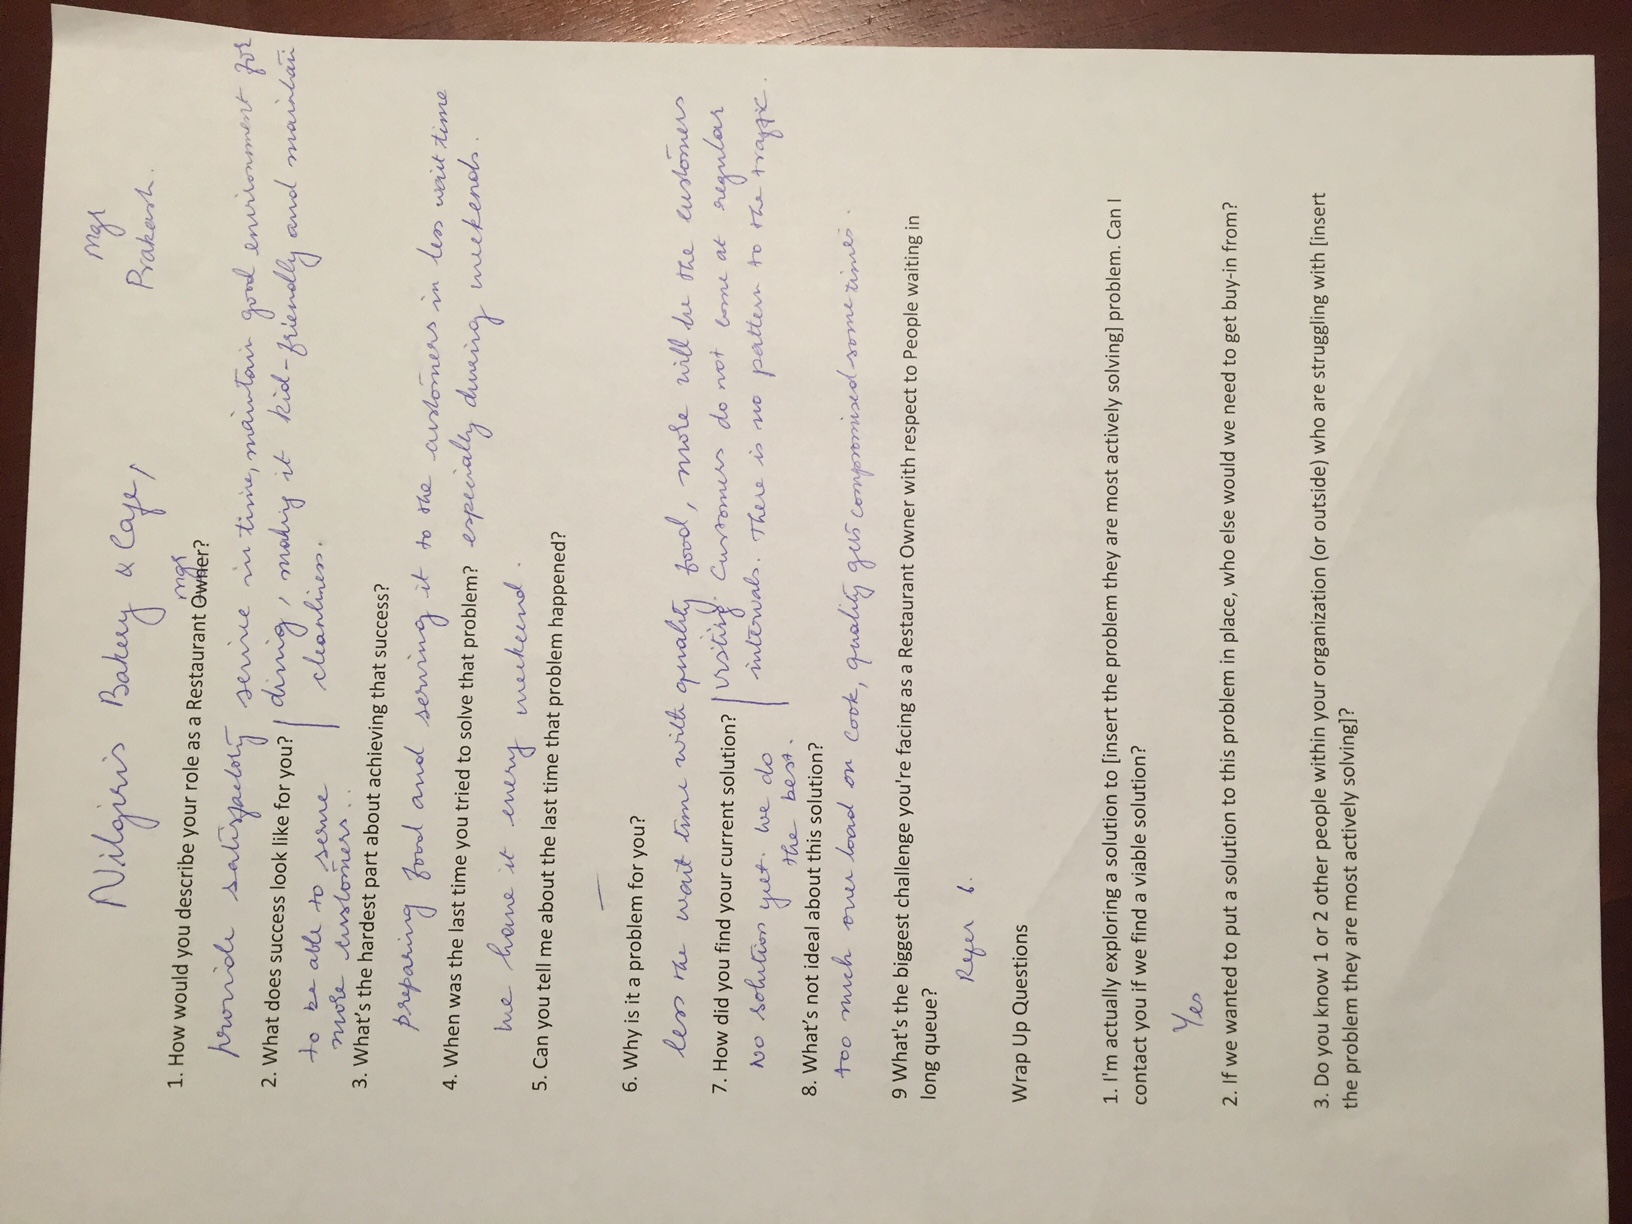 Nilgiris Bakery & Cafe,
Mgr
Prakash.
mgr
1. How would you describe your role as a Restaurant Owner?
provide satisfactory service in time, maintain good environment for
dinig, making it kid-friendly and maintain
cleanliness.
2. What does success look like for you?
to be able to serve
more customers..
3. What's the hardest part about achieving that success?
preparing food and serving it to the customers in less wait time
especially during weekends.
4. When was the last time you tried to solve that problem?
we have it every weekend.
5. Can you tell me about the last time that problem happened?
—
6. Why is it a problem for you?
less the wait time with quality food, more will be the customers
visiting. Customers do not come at regular
intervals. There is no pattern to the traffic.
7. How did you find your current solution?
No solution yet. We do
the best.
8. What's not ideal about this solution?
too much over load on cook, quality gets compromised some times.
9 What's the biggest challenge you're facing as a Restaurant Owner with respect to People waiting in
long queue?
Refer 6.
Wrap Up Questions
1. I'm actually exploring a solution to [insert the problem they are most actively solving] problem. Can I
contact you if we find a viable solution?
Yes
2. If we wanted to put a solution to this problem in place, who else would we need to get buy-in from?
3. Do you know 1 or 2 other people within your organization (or outside) who are struggling with [insert
the problem they are most actively solving]?